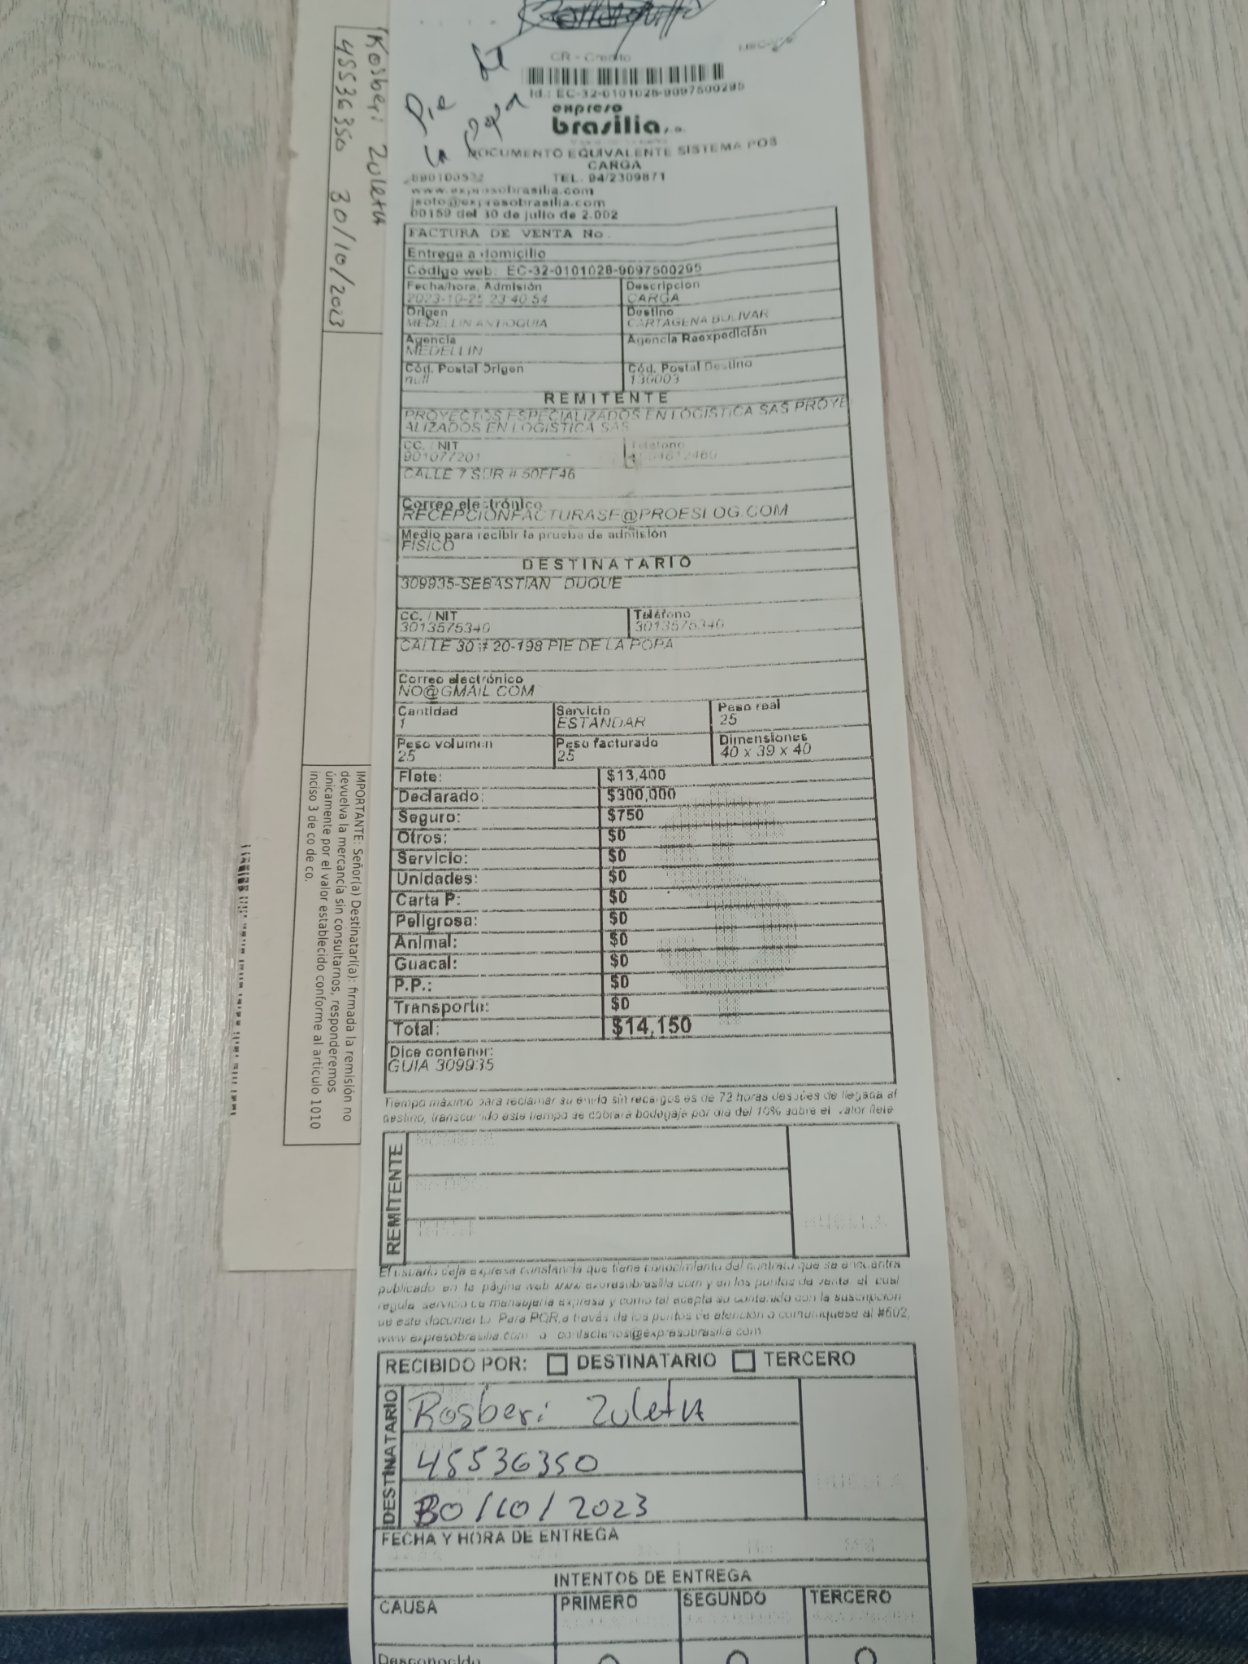 CR - Credito
Id.: EC-32-0101028-9097500295
Pie
de
la
popa
expreso
brasilia s.a.
DOCUMENTO EQUIVALENTE SISTEMA POS
CARGA
TEL. 94/2309871
www.expresobrasilia.com
jsoto@expresobrasilia.com
00159 del 30 de julio de 2.002
FACTURA DE VENTA No.
Entrega a domicilio
Código web: EC-32-0101028-9097500295
Fecha/hora, Admisión Descripcion
2023-10-25 23:40:54 CARGA
Origen Destino
MEDELLIN ANTIOQUIA CARTAGENA BOLIVAR
Agencia Agencia Raexpedición
MEDELLIN
Cód. Postal Origen Cód. Postal Destino
null 130003
REMITENTE
PROYECTOS ESPECIALIZADOS EN LOGISTICA SAS PROYE
ALIZADOS EN LOGISTICA SAS
CC. / NIT Telefono
901077201
CALLE 7 SUR # 50FF46
Correo electrónico
RECEPCIONFACTURASE@PROESLOG.COM
Medio para recibir la prueba de admisión
FISICO
DESTINATARIO
309935-SEBASTIAN DUQUE
CC. / NIT Teléfono
3013575340 3013575340
CALLE 30 # 20-198 PIE DE LA POPA
Correo electrónico
NO@GMAIL.COM
Cantidad Servicio Peso real
1 ESTANDAR 25
Peso volumen Peso facturado Dimensiones
25 25 40 x 39 x 40
Flete: $13,400
Declarado: $300,000
Seguro: $750
Otros: $0
Servicio: $0
Unidades: $0
Carta P: $0
Peligrosa: $0
Animal: $0
Guacal: $0
P.P.: $0
Transporte: $0
Total: $14,150
Dice contener:
GUIA 309935
Tiempo máximo para reclamar su envío sin recargos es de 72 horas después de llegada al
destino, transcurrido este tiempo se cobrará bodegaje por día del 10% sobre el valor flete
REMITENTE
El usuario deja expresa constancia que tiene conocimiento del contrato que se encuentra
publicado en la página web www.expresobrasilia.com y en los puntos de venta, el cual
regula servicio de mensajería expresa y como tal acepta su contenido con la suscripción
de este documento. Para PQR a través de los puntos de atención o comuníquese al #602,
www.expresobrasilia.com o contactenos@expresobrasilia.com
RECIBIDO POR: DESTINATARIO TERCERO
DESTINATARIO
Rosberi Zuleta
45536350
30/10/2023
FECHA Y HORA DE ENTREGA
INTENTOS DE ENTREGA
CAUSA PRIMERO SEGUNDO TERCERO
Desconocido
Rosberi Zuleta
45536350 30/10/2023
IMPORTANTE: Señor(a) Destinatari(a): firmada la remisión no
devuelva la mercancía sin consultarnos, responderemos
únicamente por el valor establecido conforme al artículo 1010
inciso 3 de co de co.